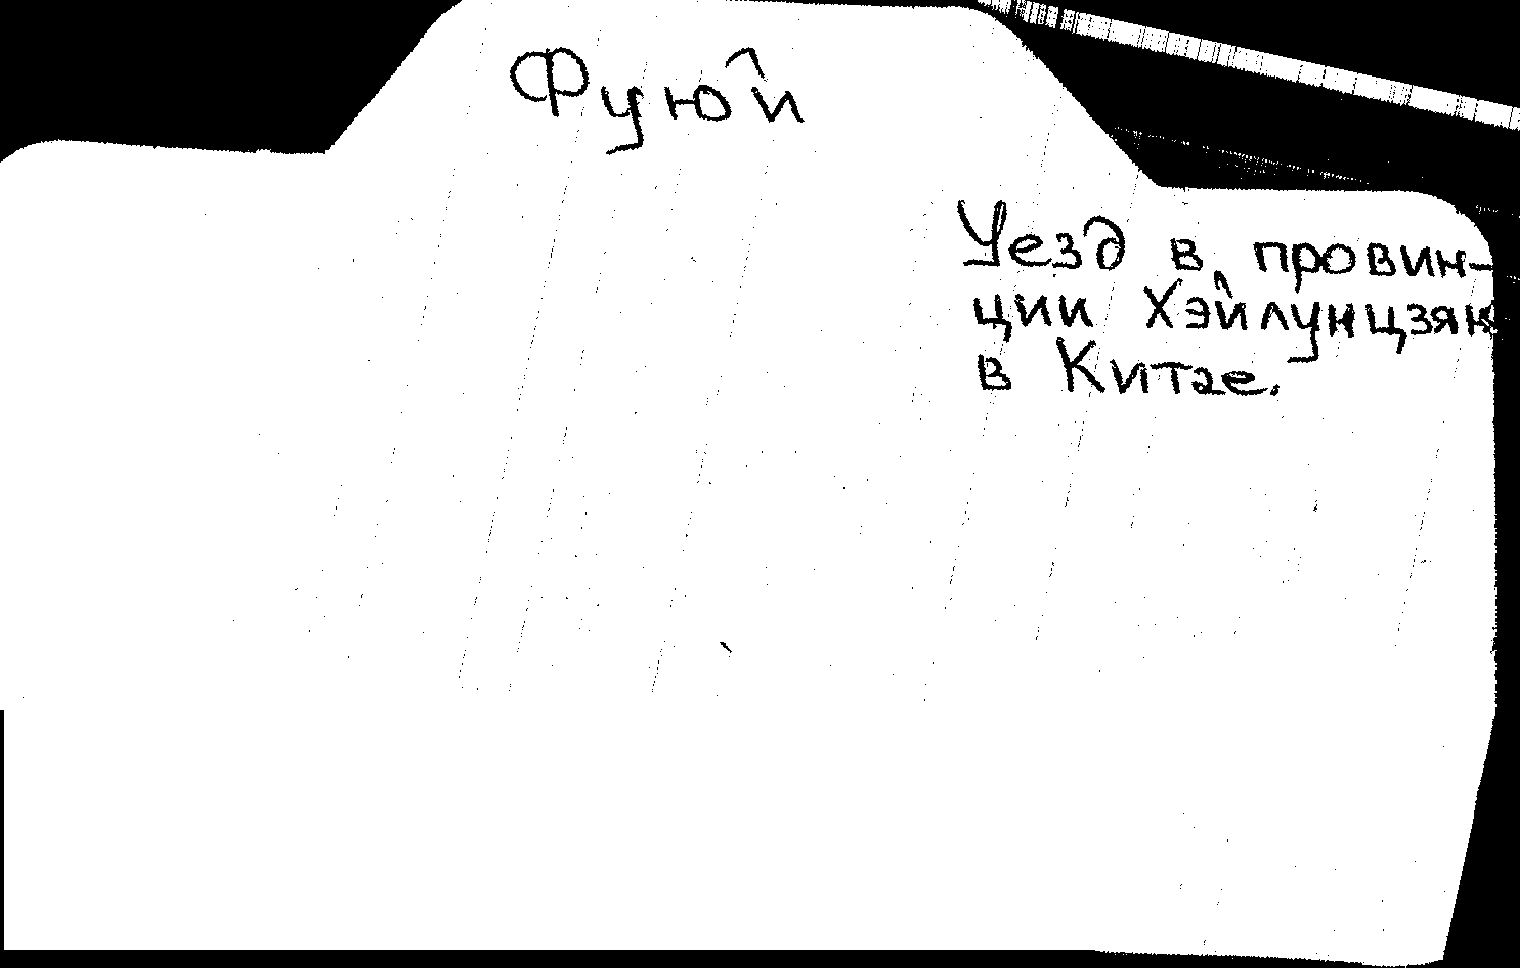 Фуюй
Уезд в провин-
ции Хэйлунцзян
в Китае.